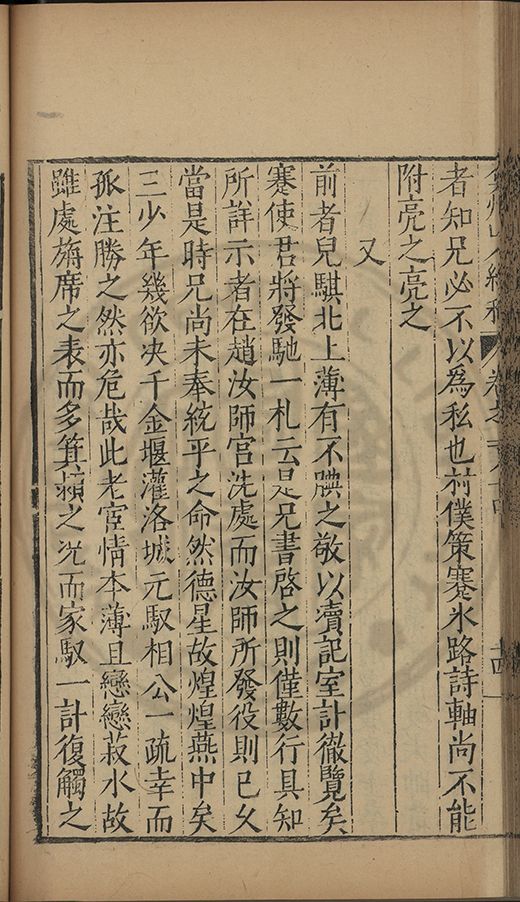 弇州山人續稿 卷之一百八十四 十四
者知兄必不以爲私也村僕策蹇氷路詩軸尚不能
附亮之亮之
又
前者兒騏北上薄有不腆之敬以瀆記室計徹覽矣
蹇使君將發馳一札云是兄書啓之則僅數行具知
所詳示者在趙汝師官洗處而汝師所發役則已久
當是時兄尚未奉統平之命然德星故煌煌燕中矣
三少年幾欲决千金堰灌洛城元馭相公一疏幸而
孤注勝之然亦危哉此老宦情本薄且戀戀菽水故
雖處旃席之表而多箕潁之况而家馭一計復觸之